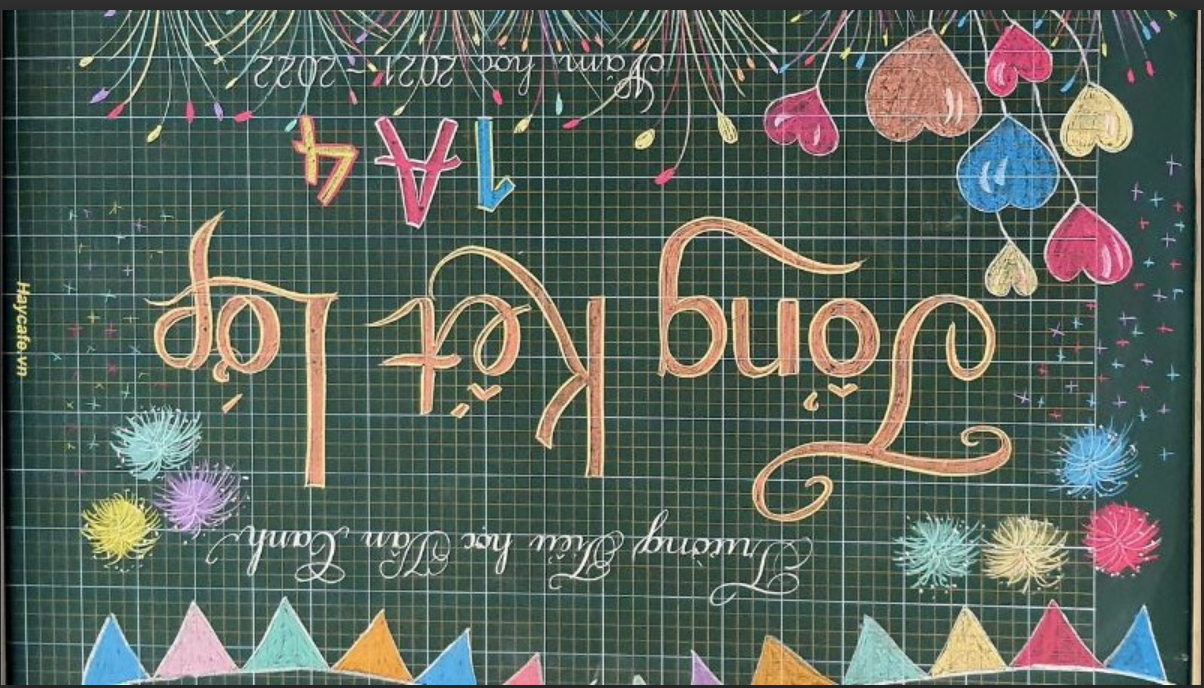 Trường Tiểu học Vân Canh
Tổng kết lớp
1A4
Năm học 2021 - 2022
Haycafe.vn